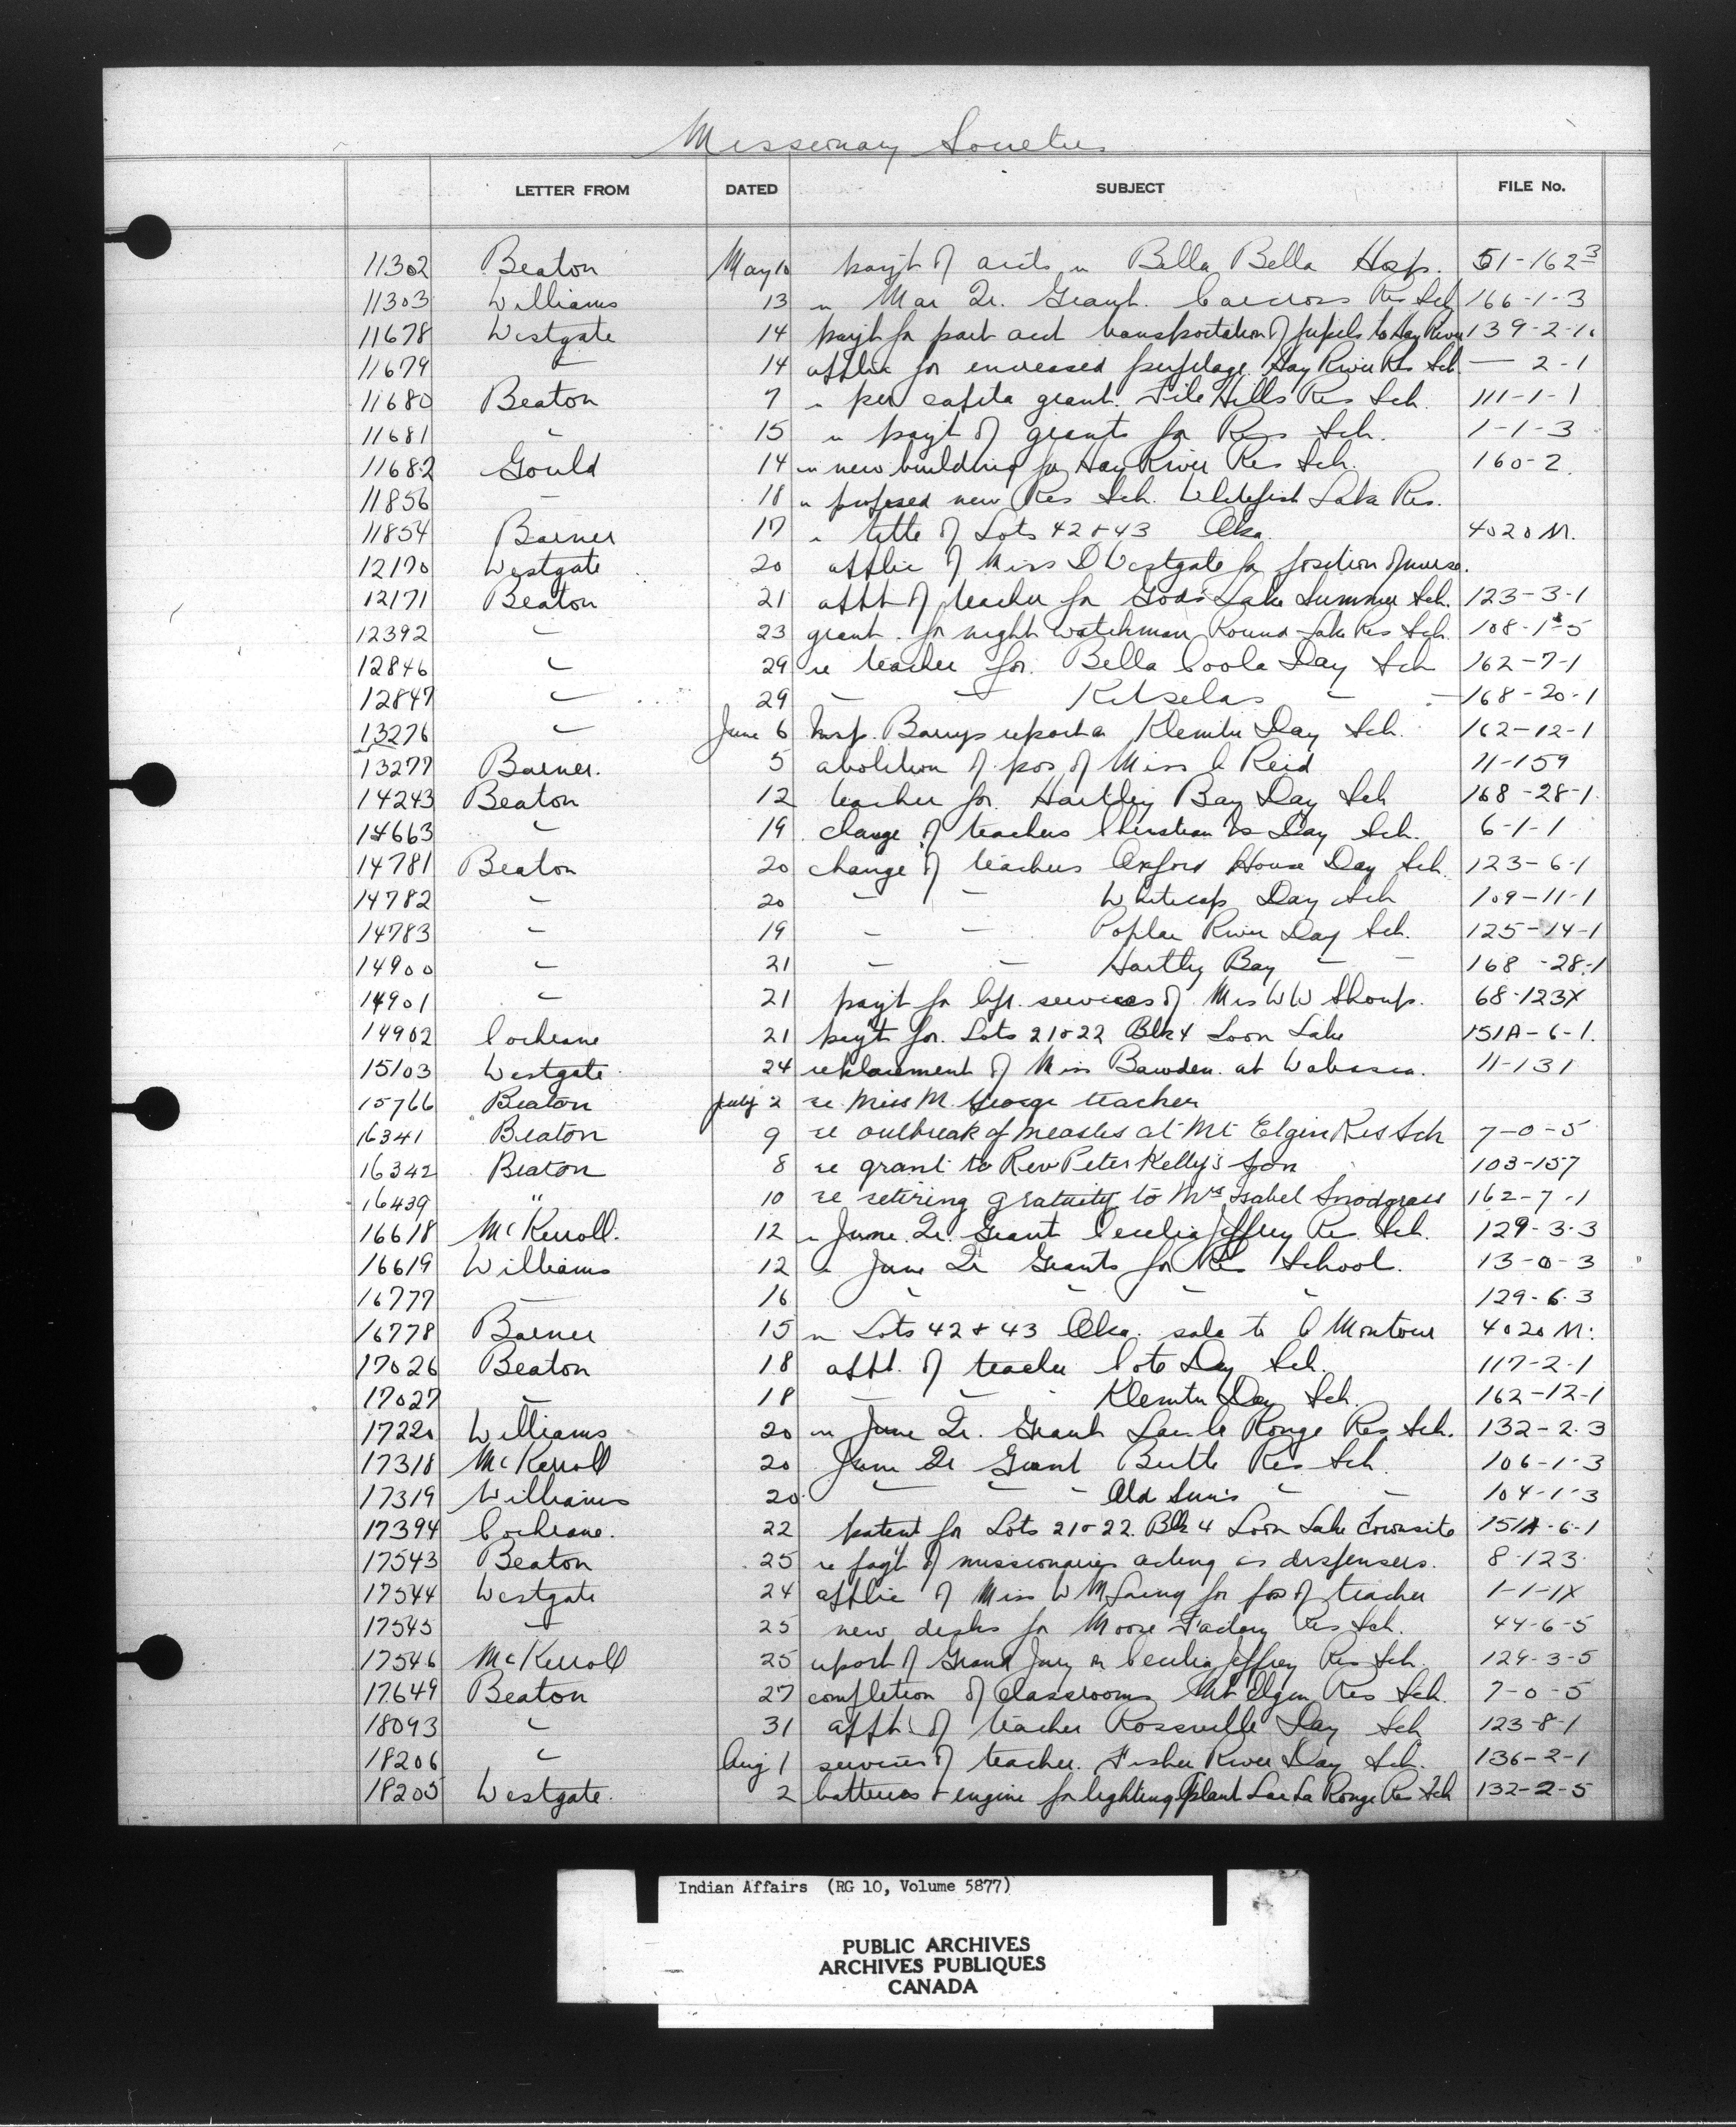 Missionary Societies
LETTER FROM DATED SUBJECT FILE No.
11302 Beaton May 10 payt of accts re Bella Bella Hosp. 51-162-3
11303 Williams 13 " Mar Qr. Grant. Carcross Res Sch 166-1-3
11678 Westgate 14 payt for part acct transportation of pupils to Hay River 139-2-1
11679 " 14 applic for increased pupilage Hay River Res Sch — 2-1
11680 Beaton 7 " per capita grant. File Hills Res Sch. 111-1-1
11681 " 15 " payt of grants for Res Sch. 1-1-3
11682 Gould 14 " new building for Hay River Res Sch. 160-2.
11856 — 18 " proposed new Res Sch. Whitefish Lake Res.
11854 Barner 17 " title of Lots 42 & 43 Oka 4020 M.
12170 Westgate 20 applic of Miss D Westgate for position of nurse.
12171 Beaton 21 appt of teacher for Gods Lake Summer Sch. 123-3-1
12392 " 23 grant for night watchman Round Lake Res Sch. 108-1-5
12846 " 29 re teacher for Bella Coola Day Sch 162-7-1
12847 " 29 — — Kitselas — — 168-20-1
13276 " June 6 Insp. Barrys report on Klemtu Day Sch. 162-12-1
13277 Barner. 5 abolition of pos of Miss C Reid 11-159
14243 Beaton 12 teacher for Hartley Bay Day Sch 168-28-1
14663 " 19 change of teachers Christian Is Day Sch. 6-1-1
14781 Beaton 20 change of teachers Oxford House Day Sch. 123-6-1
14782 " 20 — — Whitecap Day Sch 109-11-1
14783 " 19 — — Poplar River Day Sch. 125-14-1
14900 " 21 — — Hartley Bay — — 168-28-1
14901 " 21 payt for services of Mrs W W Shoup. 68-123X
14902 Cochrane 21 payt for Lots 21 & 22 Blk 4 Loon Lake 151A-6-1.
15103 Westgate 24 replacement of Miss Bawden at Wabasca. 11-131
15766 Beaton July 2 re Miss M. George teacher
16341 Beaton 9 re outbreak of measles at Mt Elgin Res Sch 7-0-5
16342 Beaton 8 re grant to Rev Peter Kelly's son 103-157
16439 " 10 re retiring gratuity to Mrs Isabel Snodgrass 162-7-1
16618 McKerroll. 12 " June Qr. Grant Cecilia Jeffrey Res. Sch. 129-3-3
16619 Williams 12 " June Qr Grants for Res School. 13-0-3
16777 — 16 " " " " 129-6-3
16778 Barner 15 " Lots 42 & 43 Oka. sale to C Montour 4020 M.
17026 Beaton 18 appt. of teacher Cote Day Sch. 117-2-1
17027 " 18 — — Klemtu Day Sch. 162-12-1
17220 Williams 20 " June Qr. Grant Lac la Ronge Res Sch. 132-2-3
17318 McKerroll 20 June Qr Grant Birtle Res Sch. 106-1-3
17319 Williams 20 — — - Old Sun's — — 104-1-3
17394 Cochrane. 22 patent for Lots 21 & 22. Blk 4 Loon Lake Townsite 151A-6-1
17543 Beaton 25 re payt of missionaries acting as dispensers. 8-123
17544 Westgate 24 applic of Miss W M Laing for pos of teacher 1-1-1X
17545 — 25 new desks for Moose Factory Res Sch. 44-6-5
17546 McKerroll 25 report of Grand Jury on Cecilia Jeffrey Res Sch. 129-3-5
17649 Beaton 27 completion of classrooms Mt Elgin Res Sch. 7-0-5
18093 " 31 appt. of teacher Rossville Day Sch 123-8-1
18206 " Aug 1 services of teacher. Fisher River Day Sch. 136-2-1
18205 Westgate. 2 batteries & engine for lighting plant Lac La Ronge Res Sch 132-2-5
Indian Affairs (RG 10, Volume 5877)
PUBLIC ARCHIVES
ARCHIVES PUBLIQUES
CANADA